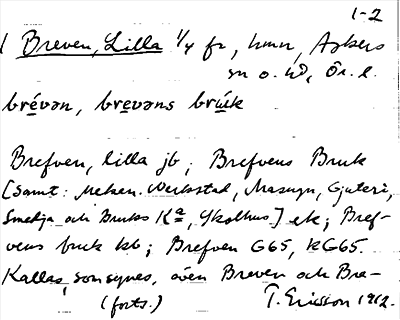 1-2
Breven, Lilla 1/4 fr, hmn, Askers
sn o. hd, Ör. l.
brévən, brevəns brúk
Brefven, lilla jb; Brefvens Bruk
[samt: Meken. Werkstad, Masugn, Gjuteri,
Smedja och Bruks Kª, Skolhus] ek; Bref-
vens bruk kb; Brefven G65, RG65.
Kallas, som synes, även Breven och Bre-
(forts.) T. Ericsson 1912.